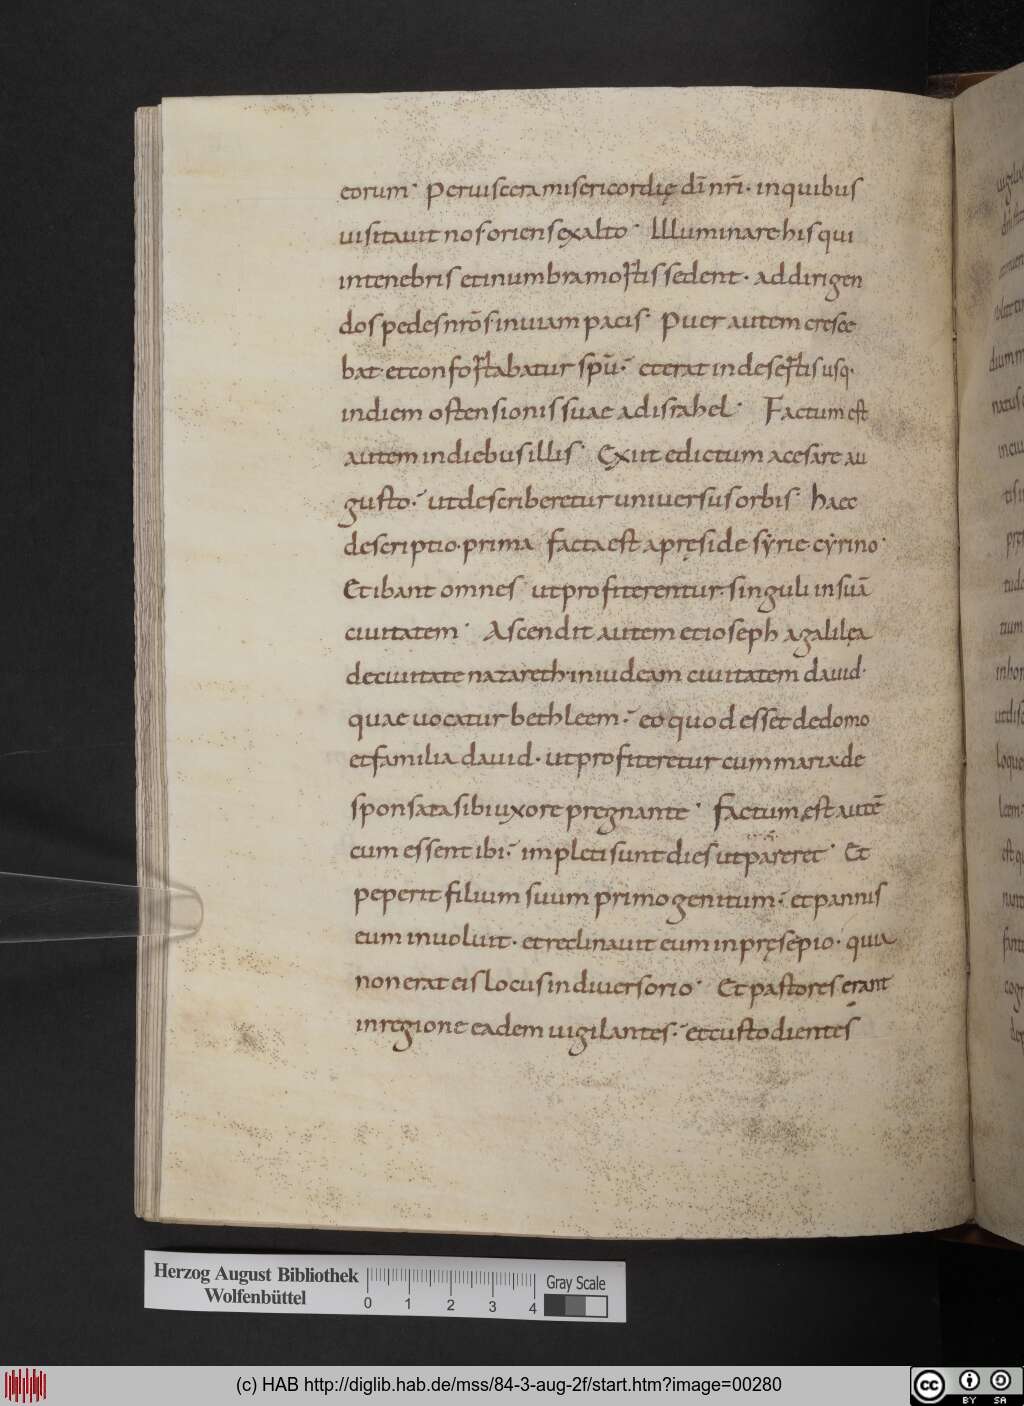 eorum· Per uiscera misericordię dī nr̄i· in quibus
uisitauit nos· oriens ex alto· Illuminare his qui
in tenebris et in umbra mortis sedent· ad dirigen
dos pedes nr̄os in uiam pacis· Puer autem cresce
bat· et confortabatur spū· et erat in desertis usq·
in diem ostensionis suae ad israhel· Factum est
autem in diebus illis· Exiit edictum a cesare au
gusto· ut describeretur uniuersus orbis· haec
descriptio· prima facta est a pręside syrie· cyrino·
Et ibant omnes ut profiterentur· singuli in suā
ciuitatem· Ascendit autem et ioseph a galilęa
de ciuitate nazareth· in iudeam ciuitatem dauid·
quae uocatur bethleem· eo quod esset de domo
et familia dauid· ut profiteretur cum maria de
sponsata sibi uxore pregnante· factum est autē
cum essent ibi· impleti sunt dies ut pareret· Et
peperit filium suum primogenitum· et pannis
eum inuoluit· et reclinauit eum in pręsepio· quia
non erat eis locus in diuersorio· Et pastores erant
in regione eadem uigilantes· et custodientes
Herzog August Bibliothek
Wolfenbüttel
0 1 2 3 4
Gray Scale
(c) HAB http://diglib.hab.de/mss/84-3-aug-2f/start.htm?image=00280
cc BY SA